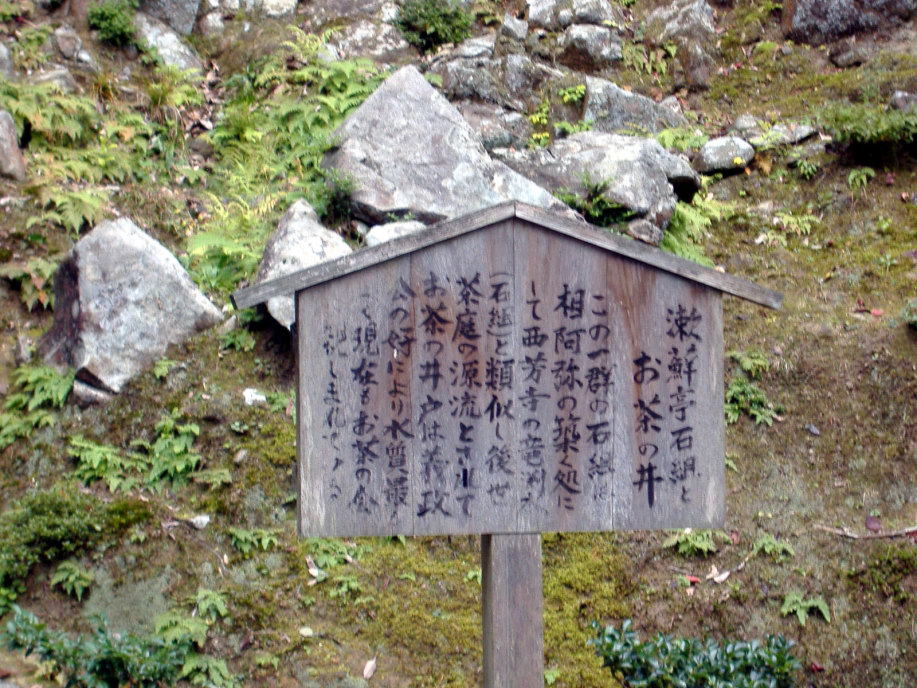 漱蘚亭石組と
お茶の井
この一群の石組は
相阿弥の築く処に
して西芳寺の竜渕水
(石組)と類似し後世
茶庭の源流とされて
お茶の井戸は義政
公の好により水質最
現在もお茶の会